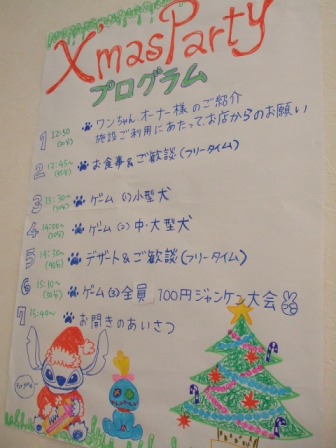 X'mas Party
プログラム
1 12:30 ワンちゃん、オーナー様のご紹介
施設ご利用にあたって、お店からのお願い
2 12:45〜 お食事&ご歓談(フリータイム)
3 13:30〜 ゲーム(1)小型犬
4 14:00〜 ゲーム(2)中・大型犬
5 14:30〜 デザート&ご歓談(フリータイム)
6 15:10〜 ゲーム(3)全員 100円ジャンケン大会
(30分)
7 15:40〜 お開きのあいさつ